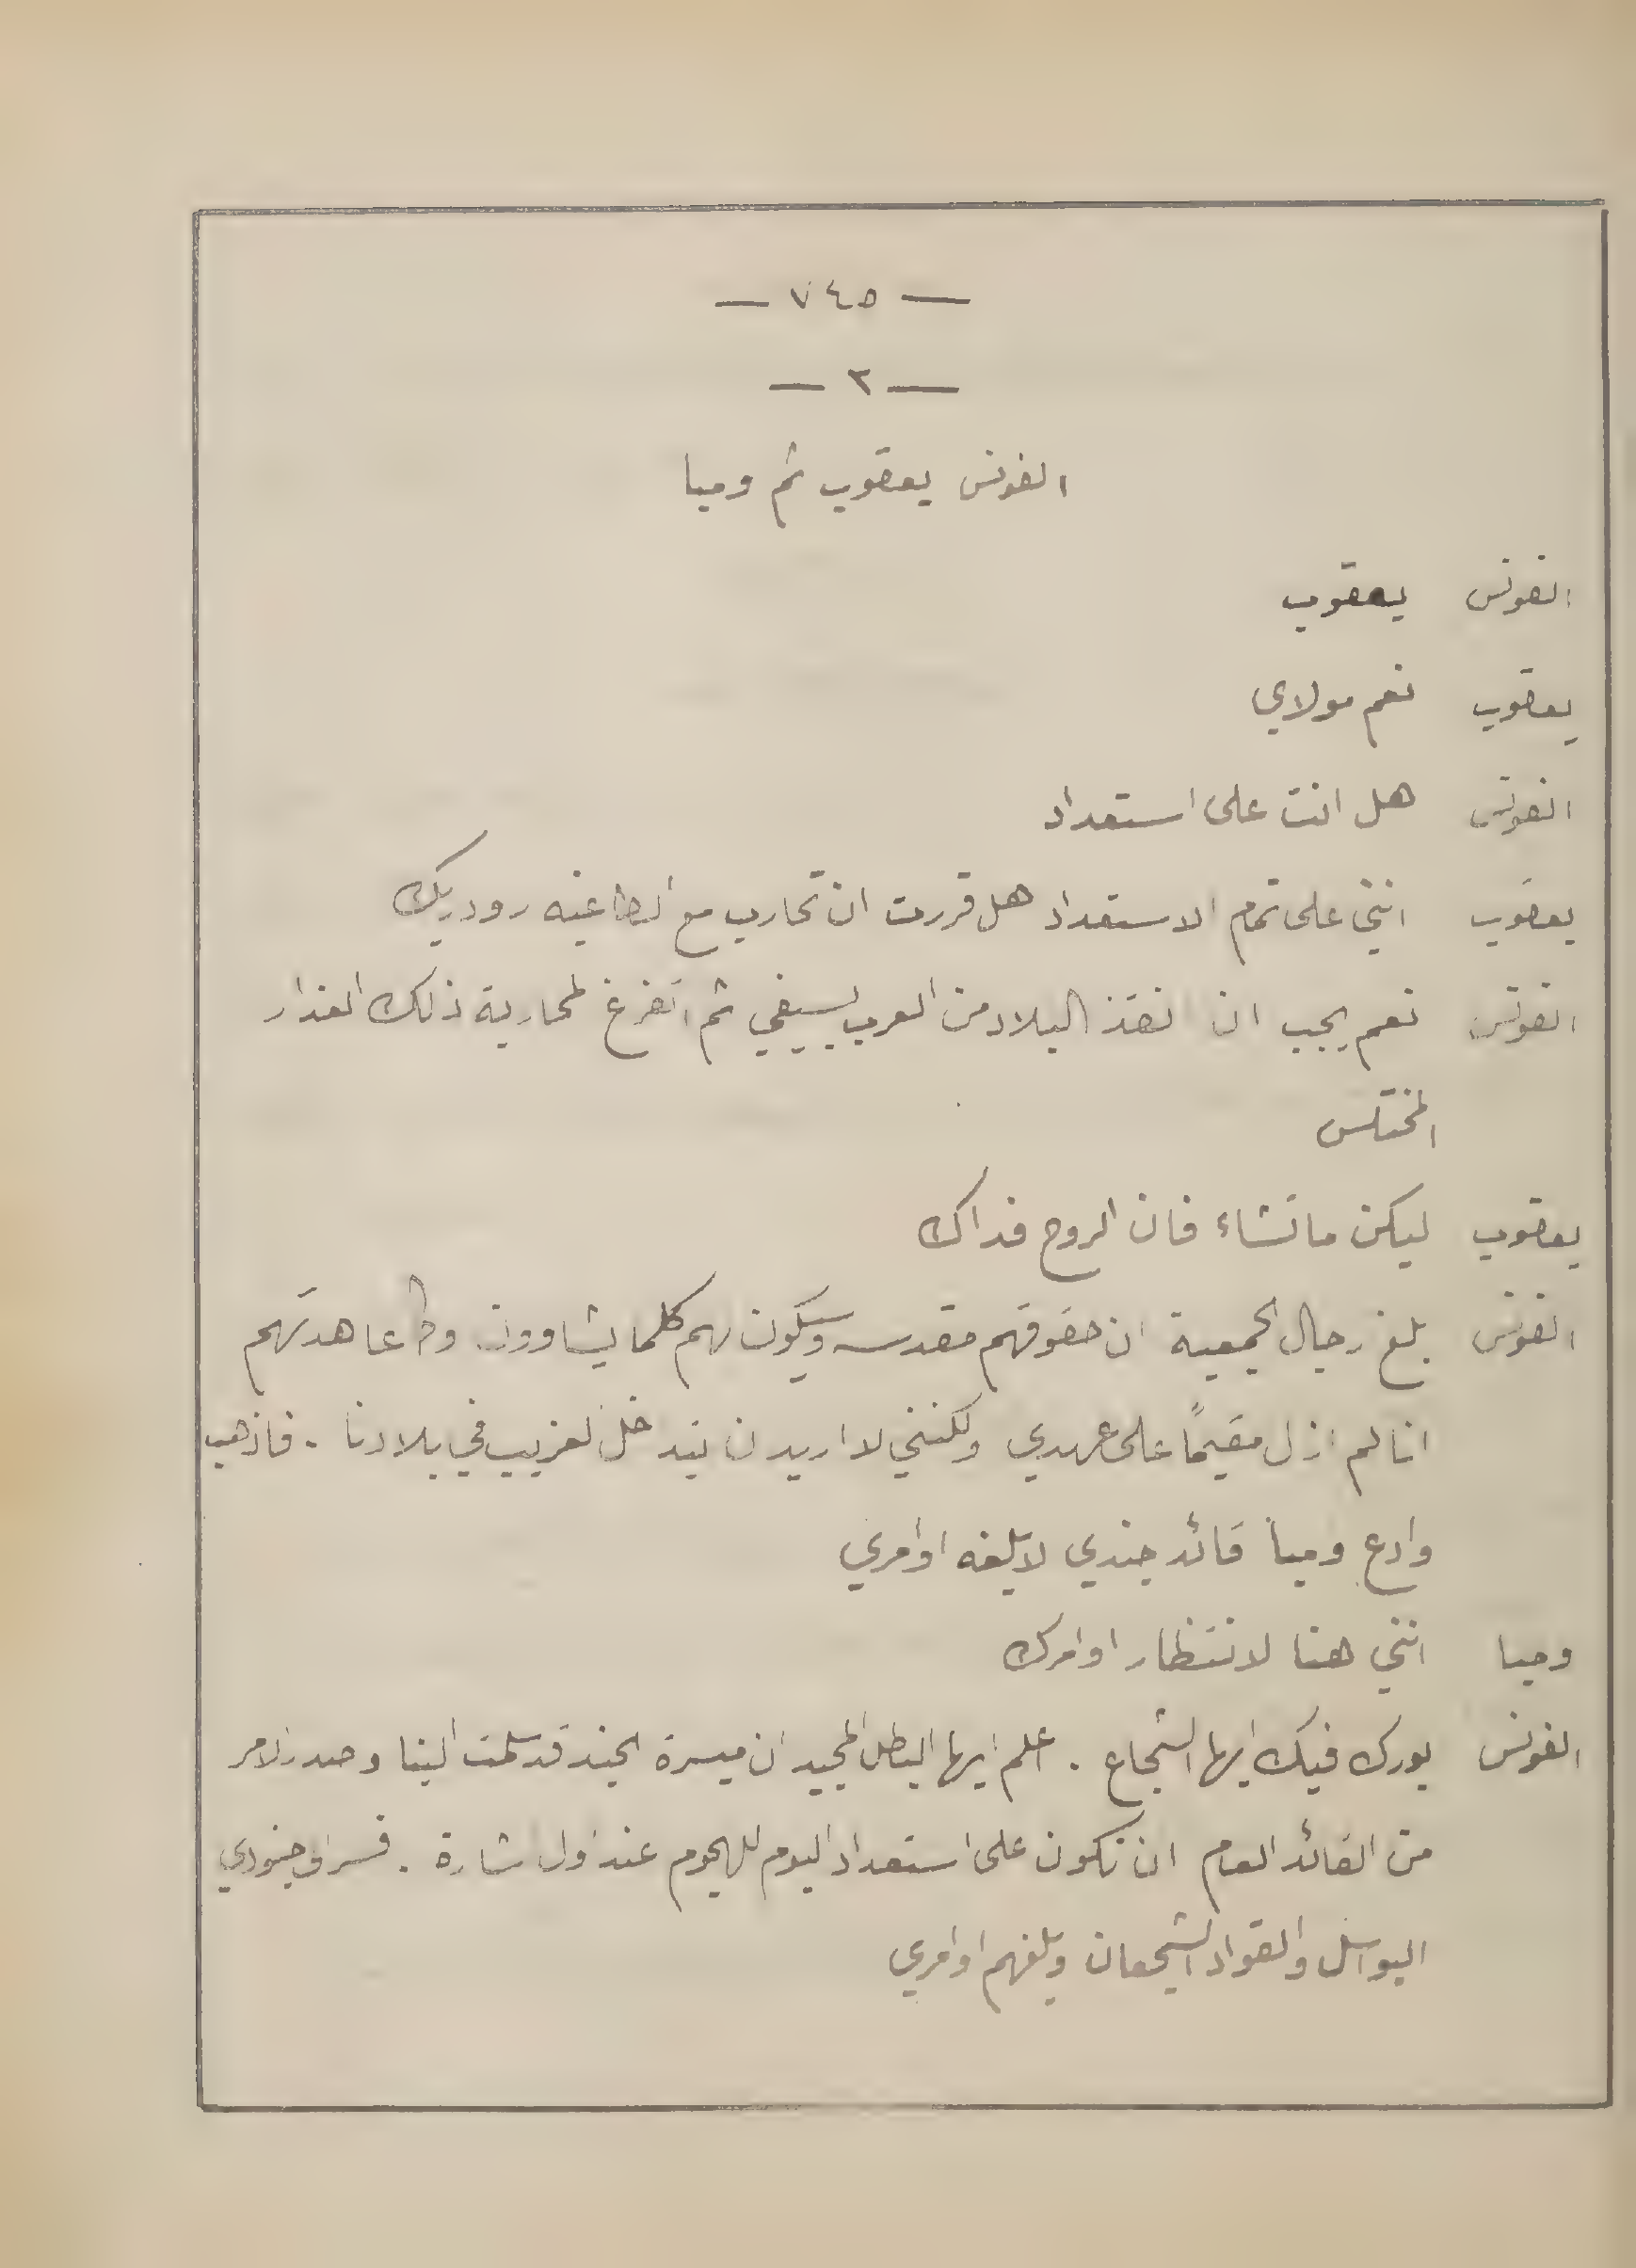 — ٧٤٥ —
— ٣ —
الفونس يعقوب ثم ومبا
الفونس يعقوب
يعقوب نعم مولاي
الفونس هل انت على استعداد
يعقوب انني على تمام الاستعداد هل قررت ان تحارب مع الطاغيه رودريك
الفونس نعم يجب ان انقذ البلاد من العرب بسيفي ثم اتفرغ لمحاربة ذلك الغدار
المختلس
يعقوب ليكن ما تشاء فان الروح فداك
الفونس بلغ رجال الجمعية ان حقوقهم مقدسه وسيكون لهم كلما يشاوون وما عاهدتهم
انا لم ازل مقيماً على عهدي ولكنني لا اريد ان يتدخل الغريب في بلادنا . فاذهب
وادع ومبا قائد جندي لابلغه اوامري
ومبا انني هنا لانتظار اوامرك
الفونس بورك فيك ايها الشجاع . اعلم ايها البطل المجيد ان ميسرة الجند قد سلمت الينا وصدر الامر
من القائد العام ان نكون على استعداد اليوم للهجوم عند اول اشارة . فسر الى جنودي
البواسل والقواد الشجعان وبلغهم اوامري